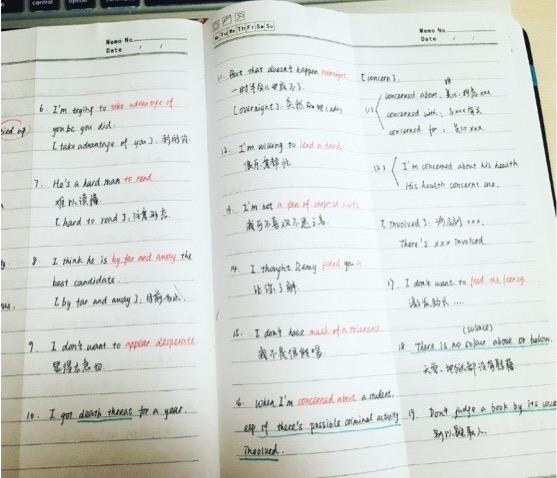 control
option
Memo No.
Date / /
6. I'm trying to take advantage of
you bc you did.
[take advantage of you]: 利用你
7. He's a hard man to read
难以读懂
[hard to read]:
8. I think he is by far and away the
best candidate.
[by far and away]: 目前为止
9. I don't want to appear desperate
显得太急切
10. I got death threat for a year.
Mo Tu We Th Fr Sa Su
11. But that doesn't happen overnight
[overnight]: 突然
12. I'm willing to lend a hand
很乐意帮忙
13. I'm not a fan of surprise visits
我可不喜欢不速之客
14. I thought Remy filled you in
让你了解
15. I don't have much of a tolerance
我不是很能喝
16. When I'm concerned about a student,
esp if there's possible criminal activity
involved.
Memo No.
Date / /
[concern].
(1) concerned about
concerned with: 与xxx有关
concerned for: 关心xxx
(2) I'm concerned about his health
His health concerns me.
[involved]: 涉及到 xxx.
There's xxx involved.
17. I don't want to feed the frenzy.
(solace)
18 There is no solace above or below.
天堂、地狱都没有慰藉
19. Don't judge a book by its cover
别以貌取人.